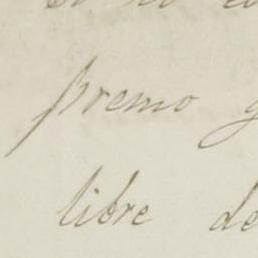 premo g
libre de